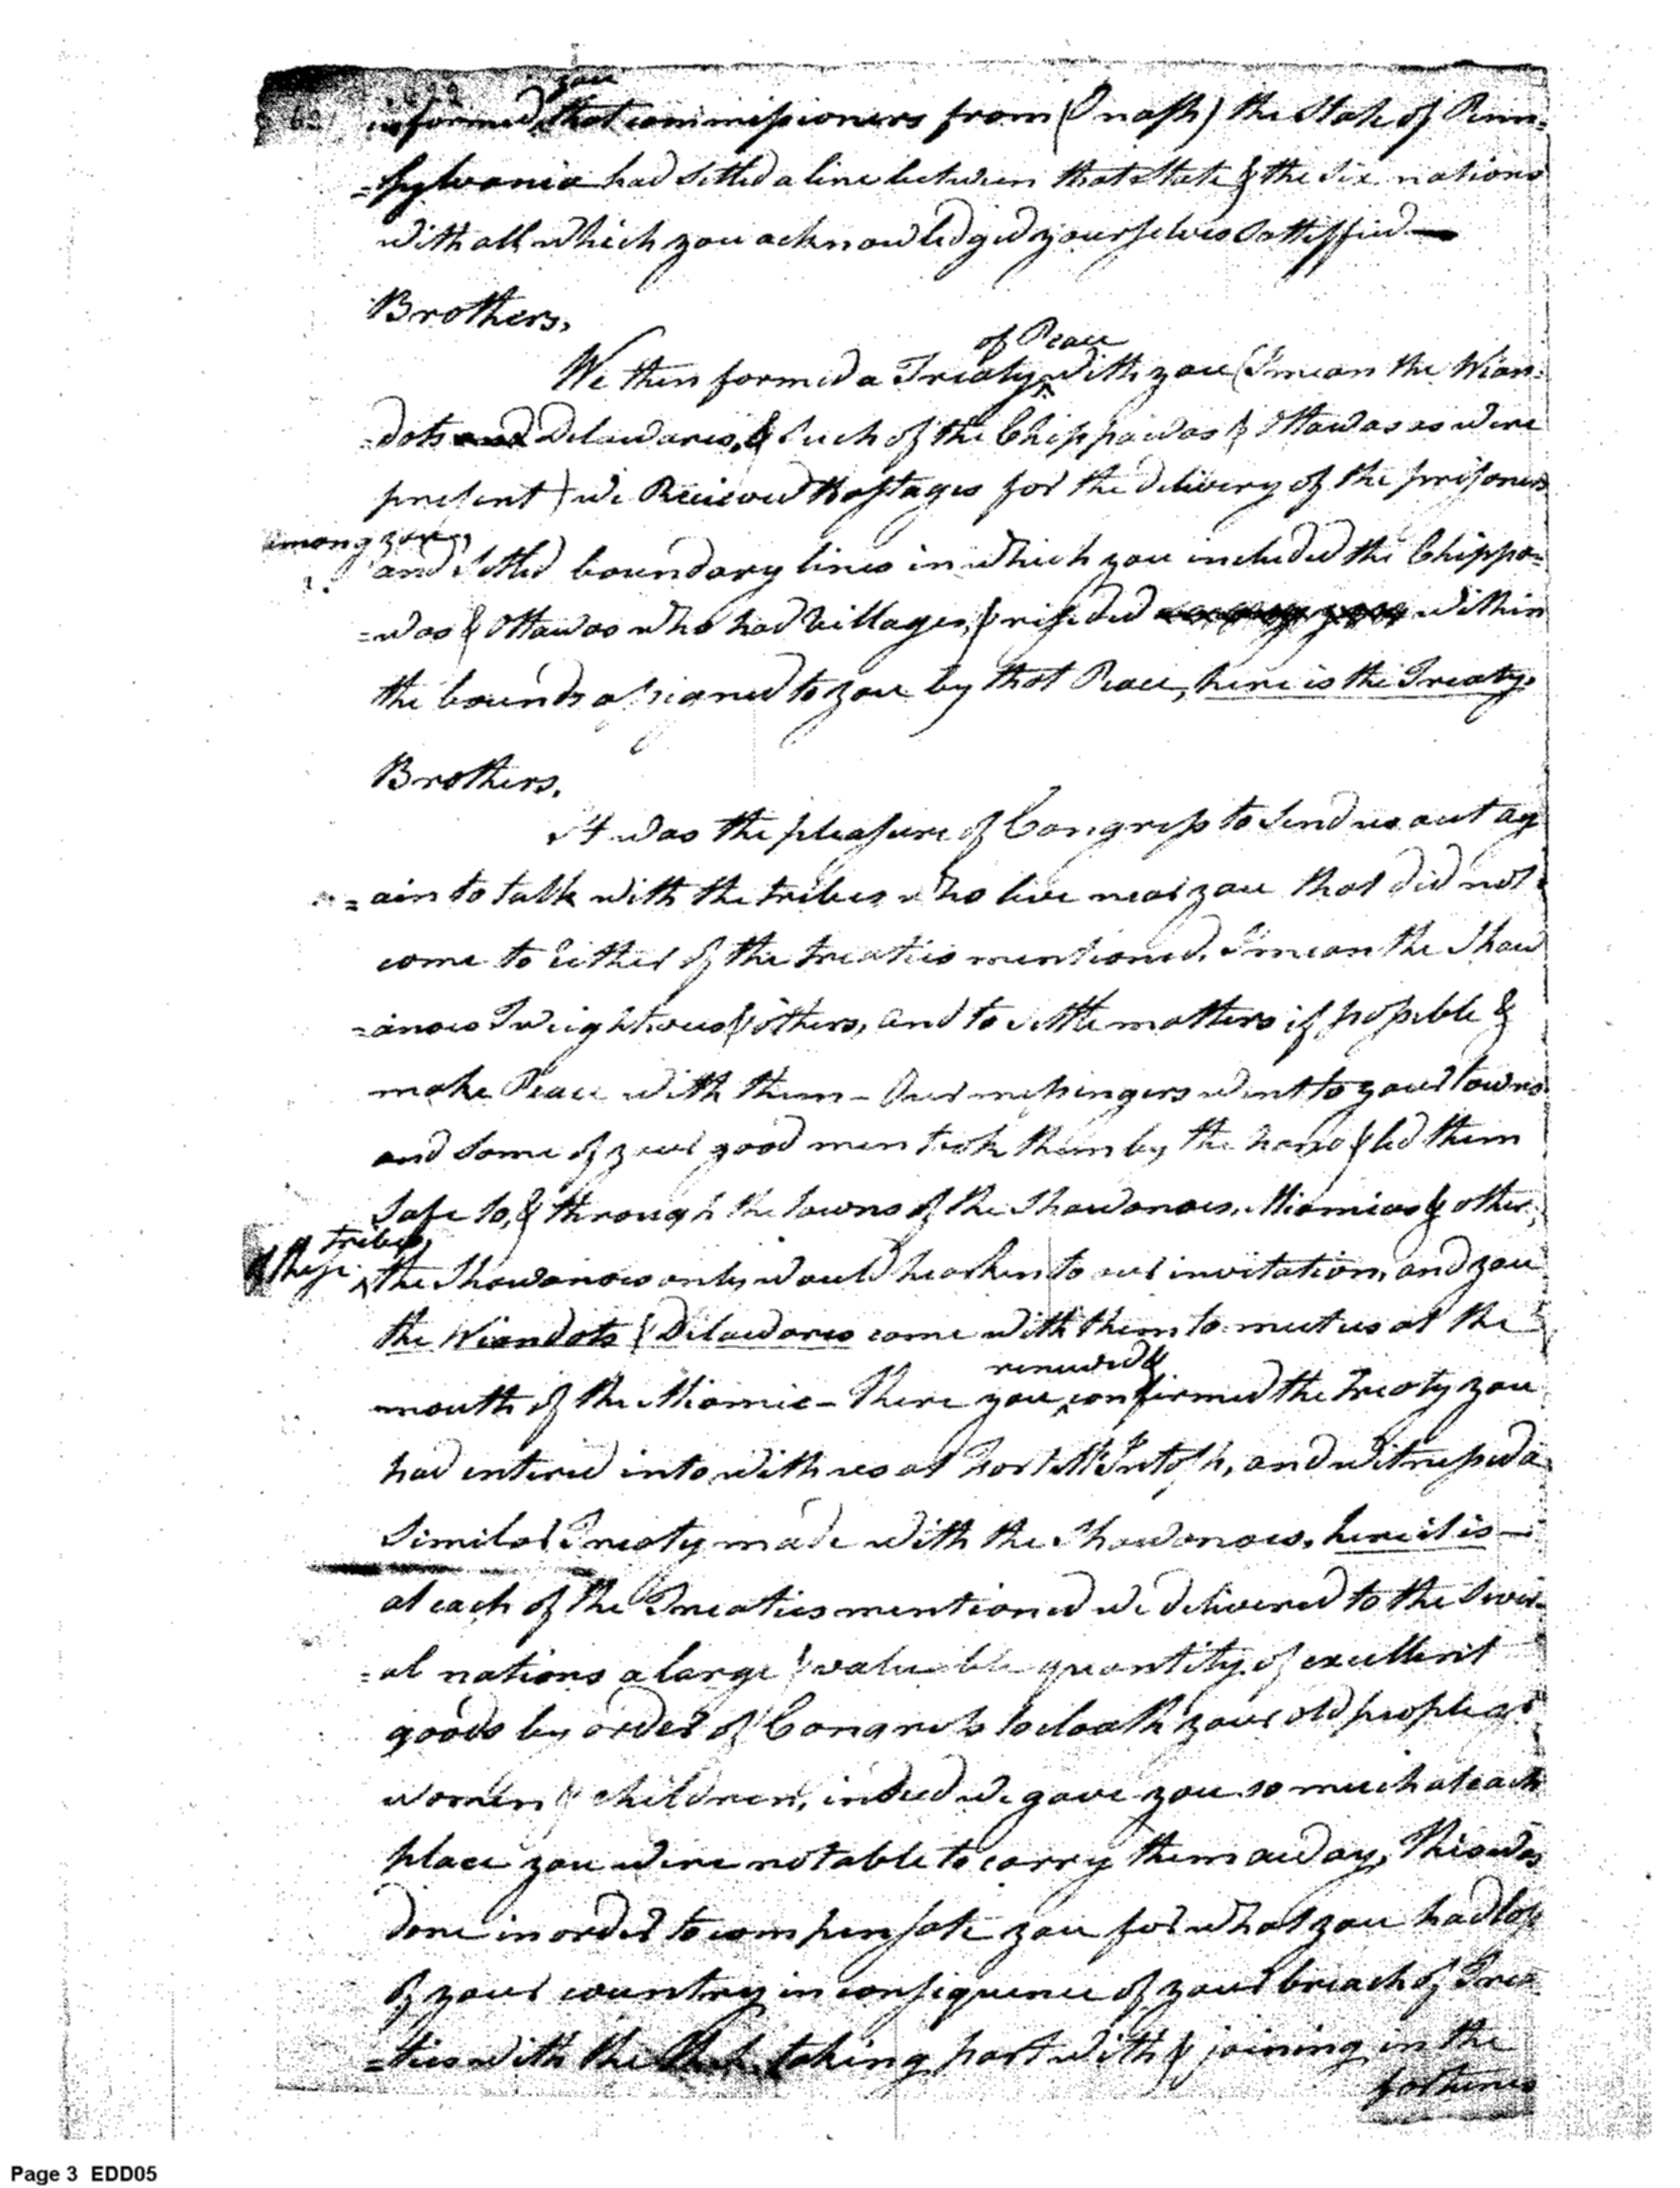 you
informed that commissioners from (Onass) the State of Penn=
=sylvania had settled a line between that State & the Six nations
with all which you acknowledged yourselves Sattisfied —
Brothers,
of Peace
We then formed a Treaty with you (I mean the Wian=
=dots and Delawares, & Such of the Chippawas & Ottawas as were
present) we Received Hostages for the delivery of the prisoners
among you,
and Settled boundary lines in which you included the Chippa=
=was & Ottawas who had Villages, & resided among you within
the bounds assigned to you by that Peace, here is the Treaty.
Brothers,
It was the pleasure of Congress to Send us out ag
=ain to talk with the tribes who live near you that did not
come to Either of the treaties mentioned, I mean the Shaw
=anoes Twightwees & others, and to Settle matters if possible &
make Peace with them - Our messingers went to your towns
and Some of your good men took them by the hand & led them
Safe to, & through the towns of the Shawanoes, Miamias & other,
tribes,
of these
the Shawanoes only would hearken to our invitation, and you
the Wiandots & Delawares came with them to meet us at the
mouth of the Miamie - There you confirmed the Treaty you
renewed &
had entered into with us at Fort McIntosh, and witnessed a
Similar Treaty made with the Shawanoes, here it is —
at each of the Treaties mentioned we delivered to the Sever=
=al nations a large & valuable quantity of excellent
goods by order of Congress to cloath your old people
women & children, indeed we gave you so much at each
place you were not able to carry them away, This was
done in order to compensate you for what you had lost
of your country in consequence of your breach of Trea
=ties with the taking part with & joining in the
fortunes
Page 3 EDD05